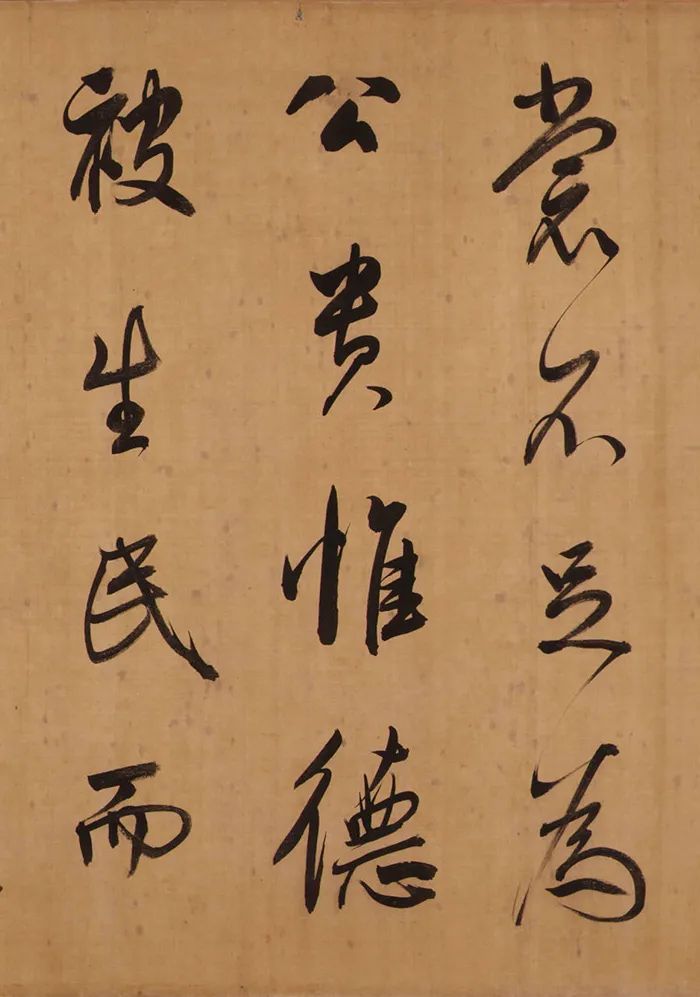 裳不足為
公貴惟德
被生民而